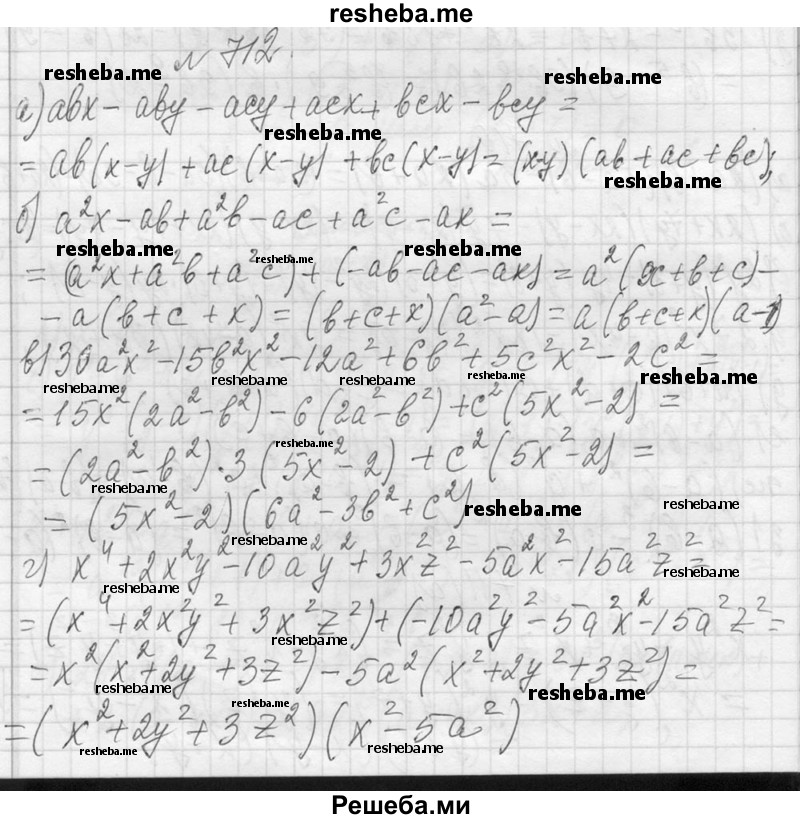 resheba.me
№ 712.
resheba.me resheba.me
а) abx - aby - acy + acx + bcx - bcy =
resheba.me
= ab(x-y) + ac(x-y) + bc(x-y) = (x-y)(ab + ac + bc);
resheba.me
б) a²x - ab + a²b - ac + a²c - ax =
resheba.me resheba.me resheba.me
= (a²x + a²b + a²c) + (-ab - ac - ax) = a²(x + b + c) -
- a(b + c + x) = (b + c + x)(a² - a) = a(b + c + x)(a - 1)
в) 30a²x² - 15b²x² - 12a² + 6b² + 5c²x² - 2c² =
resheba.me resheba.me resheba.me resheba.me resheba.me
= 15x²(2a² - b²) - 6(2a² - b²) + c²(5x² - 2) =
resheba.me
= (2a² - b²) · 3(5x² - 2) + c²(5x² - 2) =
resheba.me
= (5x² - 2)(6a² - 3b² + c²)
resheba.me resheba.me
resheba.me
г) x⁴ + 2x²y² - 10a²y² + 3x²z² - 5a²x² - 15a²z² =
resheba.me resheba.me
= (x⁴ + 2x²y² + 3x²z²) + (-10a²y² - 5a²x² - 15a²z² =
resheba.me
= x²(x² + 2y² + 3z²) - 5a²(x² + 2y² + 3z²) =
resheba.me resheba.me resheba.me
= (x² + 2y² + 3z²)(x² - 5a²)
resheba.me resheba.me
Решеба.ми